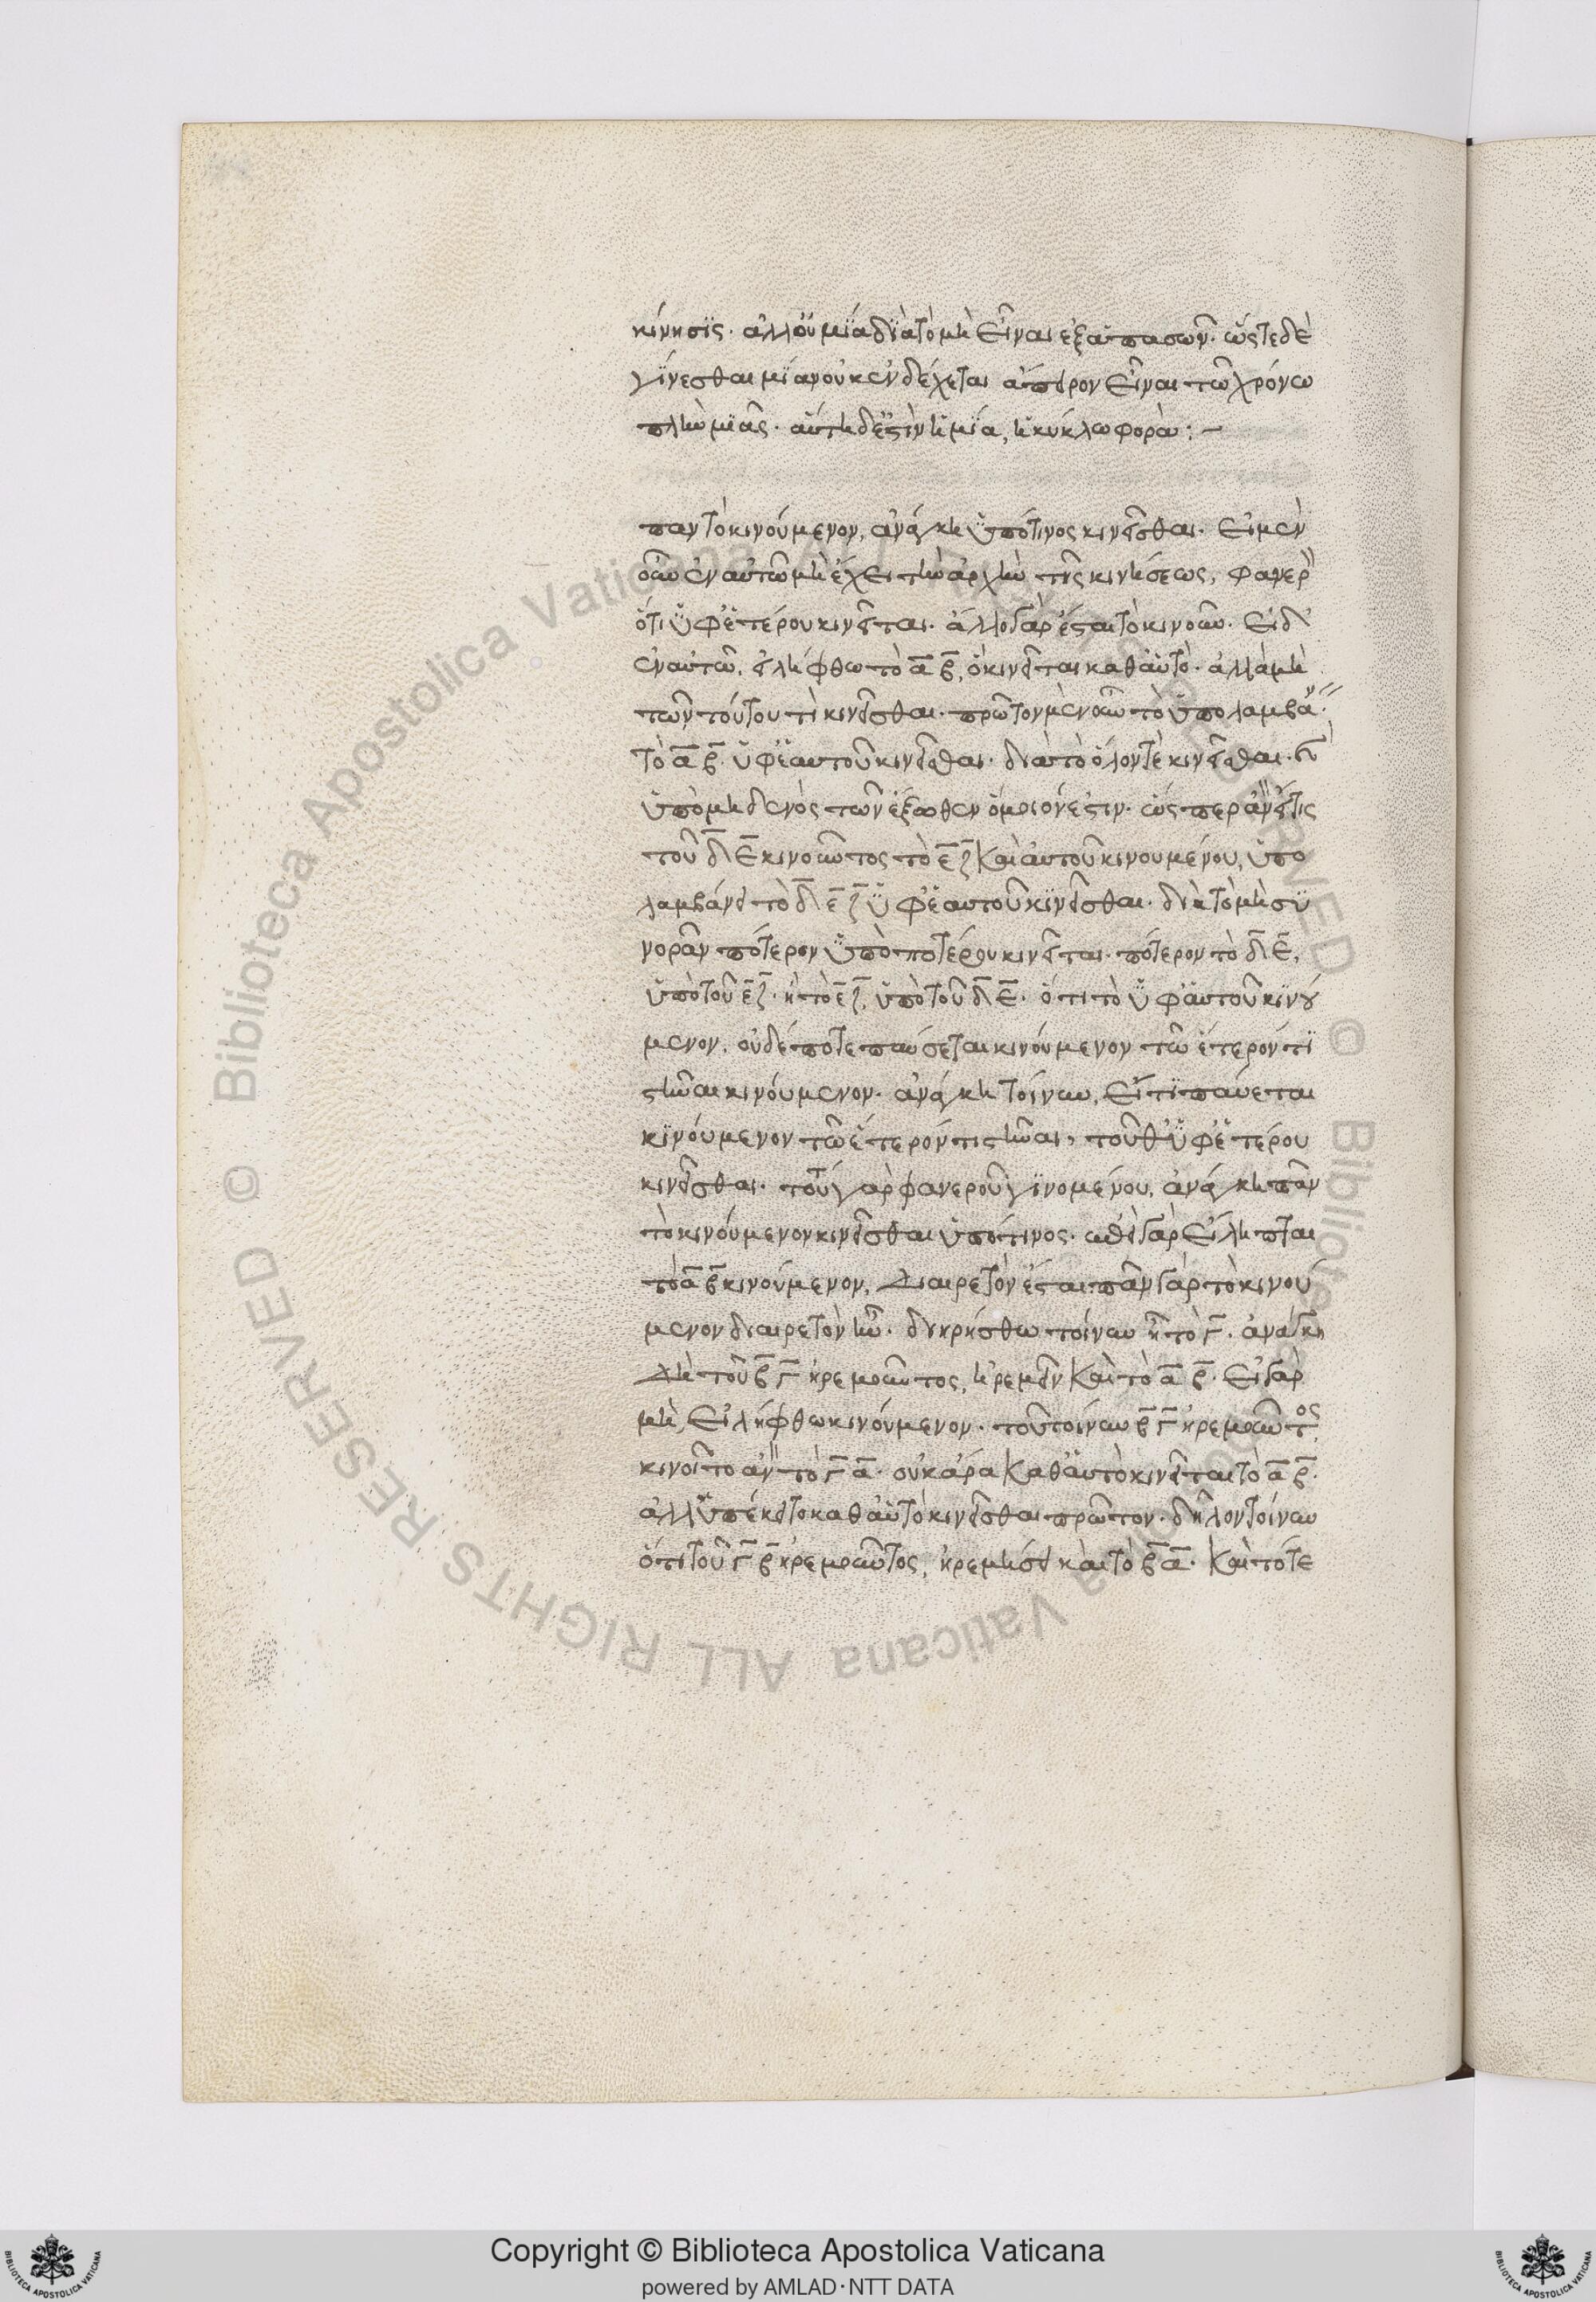 κίνησϊς. ἀλλ οὐ μϊα διὰ τὸ μὴ εἶναι ἐξ ἁπασῶν. ὥστε δὲ
γΐνεσθαι μΐαν οὐκ ἐνδέχεται ἄπειρον εἶναι τῶ χρόνω
πλὴν μϊᾶς. αὕτη δ ἐστὶν ἡ μΐα, ἡ κύκλω φορὰ:–
παν τὸ κινούμενον, ἀνάγκη ὑπό τινος κινεῖσθαι. εἰ μὲν
οὖν ἐν αὐτῶ μὴ ἔχει τὴν ἀρχὴν τῆς κινήσεως, φανερ
ὅτι ὑφ ἑτέρου κινεῖται. ἄλλο γὰρ ἔσται τὸ κινοῦν. εἰ δ
ἐν αὐτῶ, εἰλήφθω τὸ α β, ὃ κινεῖται καθ αὑτὸ. ἀλλὰ μὴ
τῶν τούτου τὶ κινεῖσθαι. πρῶτον μὲν οὖν τὸ ὑπολαμβά
τὸ α β. ὑφ ἑαυτοῦ κινεῖσθαι. διὰ τὸ ὅλον τὲ κινεῖσθαι.
ὑπὸ μηδενὸς τῶν ἔξωθεν ὅμοιόν ἐστιν. ὥσπερ ἂν εἴ τις
τοῦ δ ε κινοῦντος τὸ ε ζ καὶ αὐτοῦ κινουμένου, ὑπο
λαμβάνει τὸ δ ε ζ ὑφ ἑαυτοῦ κϊνεῖσθαι. διὰ τὸ μὴ συ
νορᾶν πότερον ὑπὸ ποτέρου κινεῖται. πότερον τὸ δ ε,
ὑπὸ τοῦ ε ζ. ἢ τὸ ε ζ, ὑπὸ τοῦ δ ε. ὅτι τὸ ὑφ αὑτοῦ κϊνού
μενον, οὐδέποτε παύσεται κινούμενον τῶ ἕτερόν τϊ
στῆναι κινούμενον. ἀνάγκη τοίνυν, εἴ τϊ παύεται
κϊνούμενον τῶ ἕτερόν τι στῆναι, τοῦθ ὑφ ἑτέρου
κινεῖσθαι. τούτου γὰρ φανεροῦ γϊνομένου, ἀνάγκη πᾶν
τὸ κινούμενον κινεῖσθαι ὑπό τινος. ἐπεὶ γὰρ εἴληπται
τὸ α β κινούμενον, διαιρετὸν ἔσται. πᾶν γὰρ τὸ κινού
μενον διαιρετὸν ἦν. διῃρήσθω τοίνυν ἧ τὸ γ. ἀνάγκη
δὴ τοῦ β γ ἠρεμοῦντος, ἠρεμεῖν καὶ τὸ α β. εἰ γὰρ
μὴ, εἰλήφθω κινούμενον. τοῦ τοίνυν β γ ἠρεμοῦντος,
κινοῖτο ἂν τὸ γ α. οὐκ ἄρα καθ αὑτὸ κινεῖται τὸ α β.
ἀλλ ὑπέκειτο καθ αὑτὸ κινεῖσθαι πρῶτον. δῆλον τοίνυν
ὅτι τοῦ γ β ἠρεμοῦντος, ἠρεμήσει καὶ τὸ β α. καὶ τότε
Copyright © Biblioteca Apostolica Vaticana
powered by AMLAD·NTT DATA